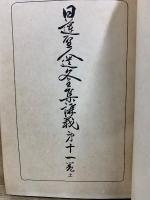 日蓮聖人遺文集講義第十一巻上